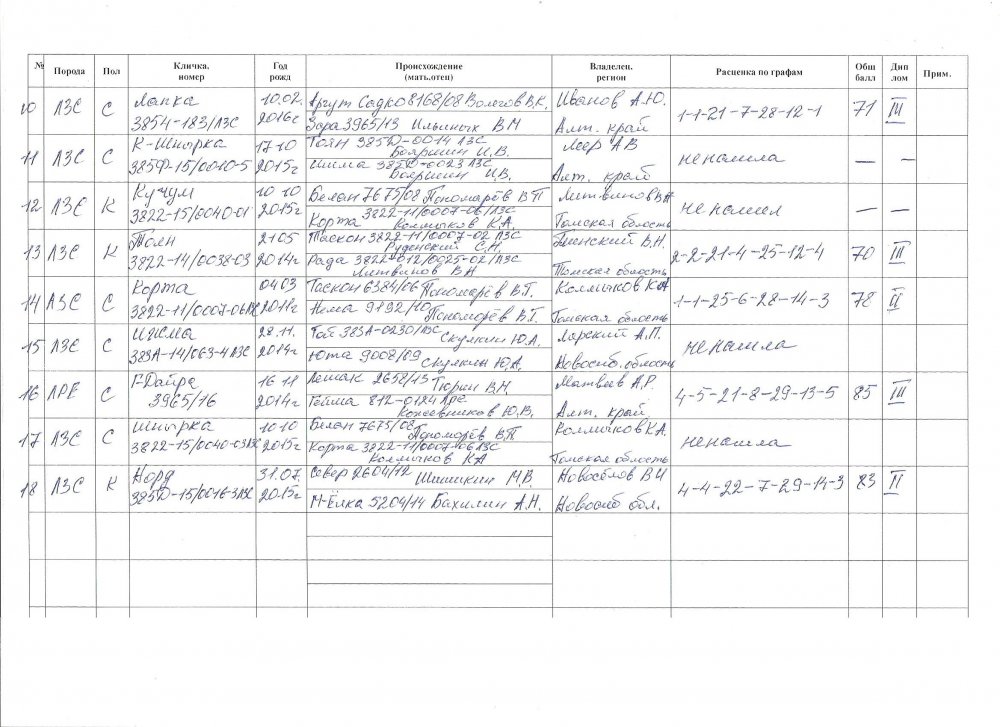 № Порода Пол Кличка. номер Год рожд Происхождение (мать.отец) Владелец. регион Расценка по графам Общ балл Дип лом Прим.
10 ЛЗС С Лапка 10.02. Аргут Садко 8168/08 Волегов В.К. Иванов А.Ю. 1-1-21-7-28-12-1 71 III
3854-183/ЛЗС 2016г Зара 3965/13 Ильиных В.М Алт. край
11 ЛЗС С К-Шнырка 17 10 Тоян 385Ф-0014 ЛЗС Бояршин И.В. Леер А В не нашла — —
385Ф-15/0010-5 2015г Шима 385Ф-0023 ЛЗС Бояршин И.В. Алт. край
12 ЛЗС К Кучум 10 10 Белан 7675/08 Пономарёв В П Литвинов В.Н не нашел — —
3822-15/0040-01 2015г Корта 3822-11/0007-06/ЛЗС Колмыков К.А. Томская область
13 ЛЗС К Тоян 21 05 Таскон 3822-11/0007-02 ЛЗС Руденский С.Н. В.Н. 2-2-21-4-25-12-4 70 III
3822-14/0038-03 2014г Рада 3822-012/0025-02/ЛЗС Литвинов В Н Томская область
14 ЛЗС С Корта 04 03 Таскон 6384/06 Пономарёв В.П. Колмычков К А 1-1-25-6-28-14-3 78 II
3822-11/0007-06ЛЗС 2011г Нема 9192/10 Пономорёв В.П. Томская область
15 ЛЗС С Ижма 28.11. Той 383А-0230/ЛЗС Скулкин Ю.А. Ларский А.П. не нашла
383А-14/063-4 ЛЗС 2014г Юта 9008/09 Скулкин Ю.А. Новосиб. область
16 ЛРЕ С Г-Дайра 16 11 Лешак 2658/13 Тюрин В.Н. Матвеев А.Р. 4-5-21-8-29-13-5 85 III
3965/16 2014г Гейма 812-0124 ЛРЕ Кожевников Ю.В. Алт. край
17 ЛЗС С Шнырка 10 10 Белан 7675/08 Пономорёв В.П Колмычков К А. не нашла
3822-15/0040-03ЛЗС 2015г Корта 3822-11/0007-06 ЛЗС Колмычков К А Томская область
18 ЛЗС К Норд 31.07. Север 2604/12 Шишикин М.В. Новосёлов В И 4-4-22-7-29-14-3 83 II
385Ф-15/0016-3ЛЗС 2015г М-Ёлка 5204/14 Бахилин А.Н. Новосиб обл.